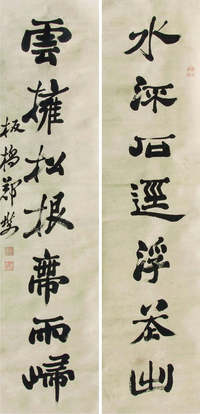 水深石逕浮茶出
雲擁松根帶雨歸
板橋鄭燮